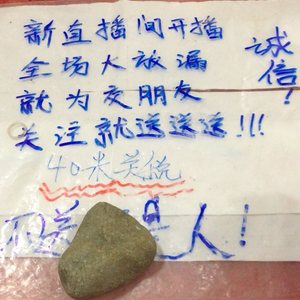 新直播间开播
全场大放漏
就为交朋友
关注就送送送!!!
诚信!
40米关悦
不是人!